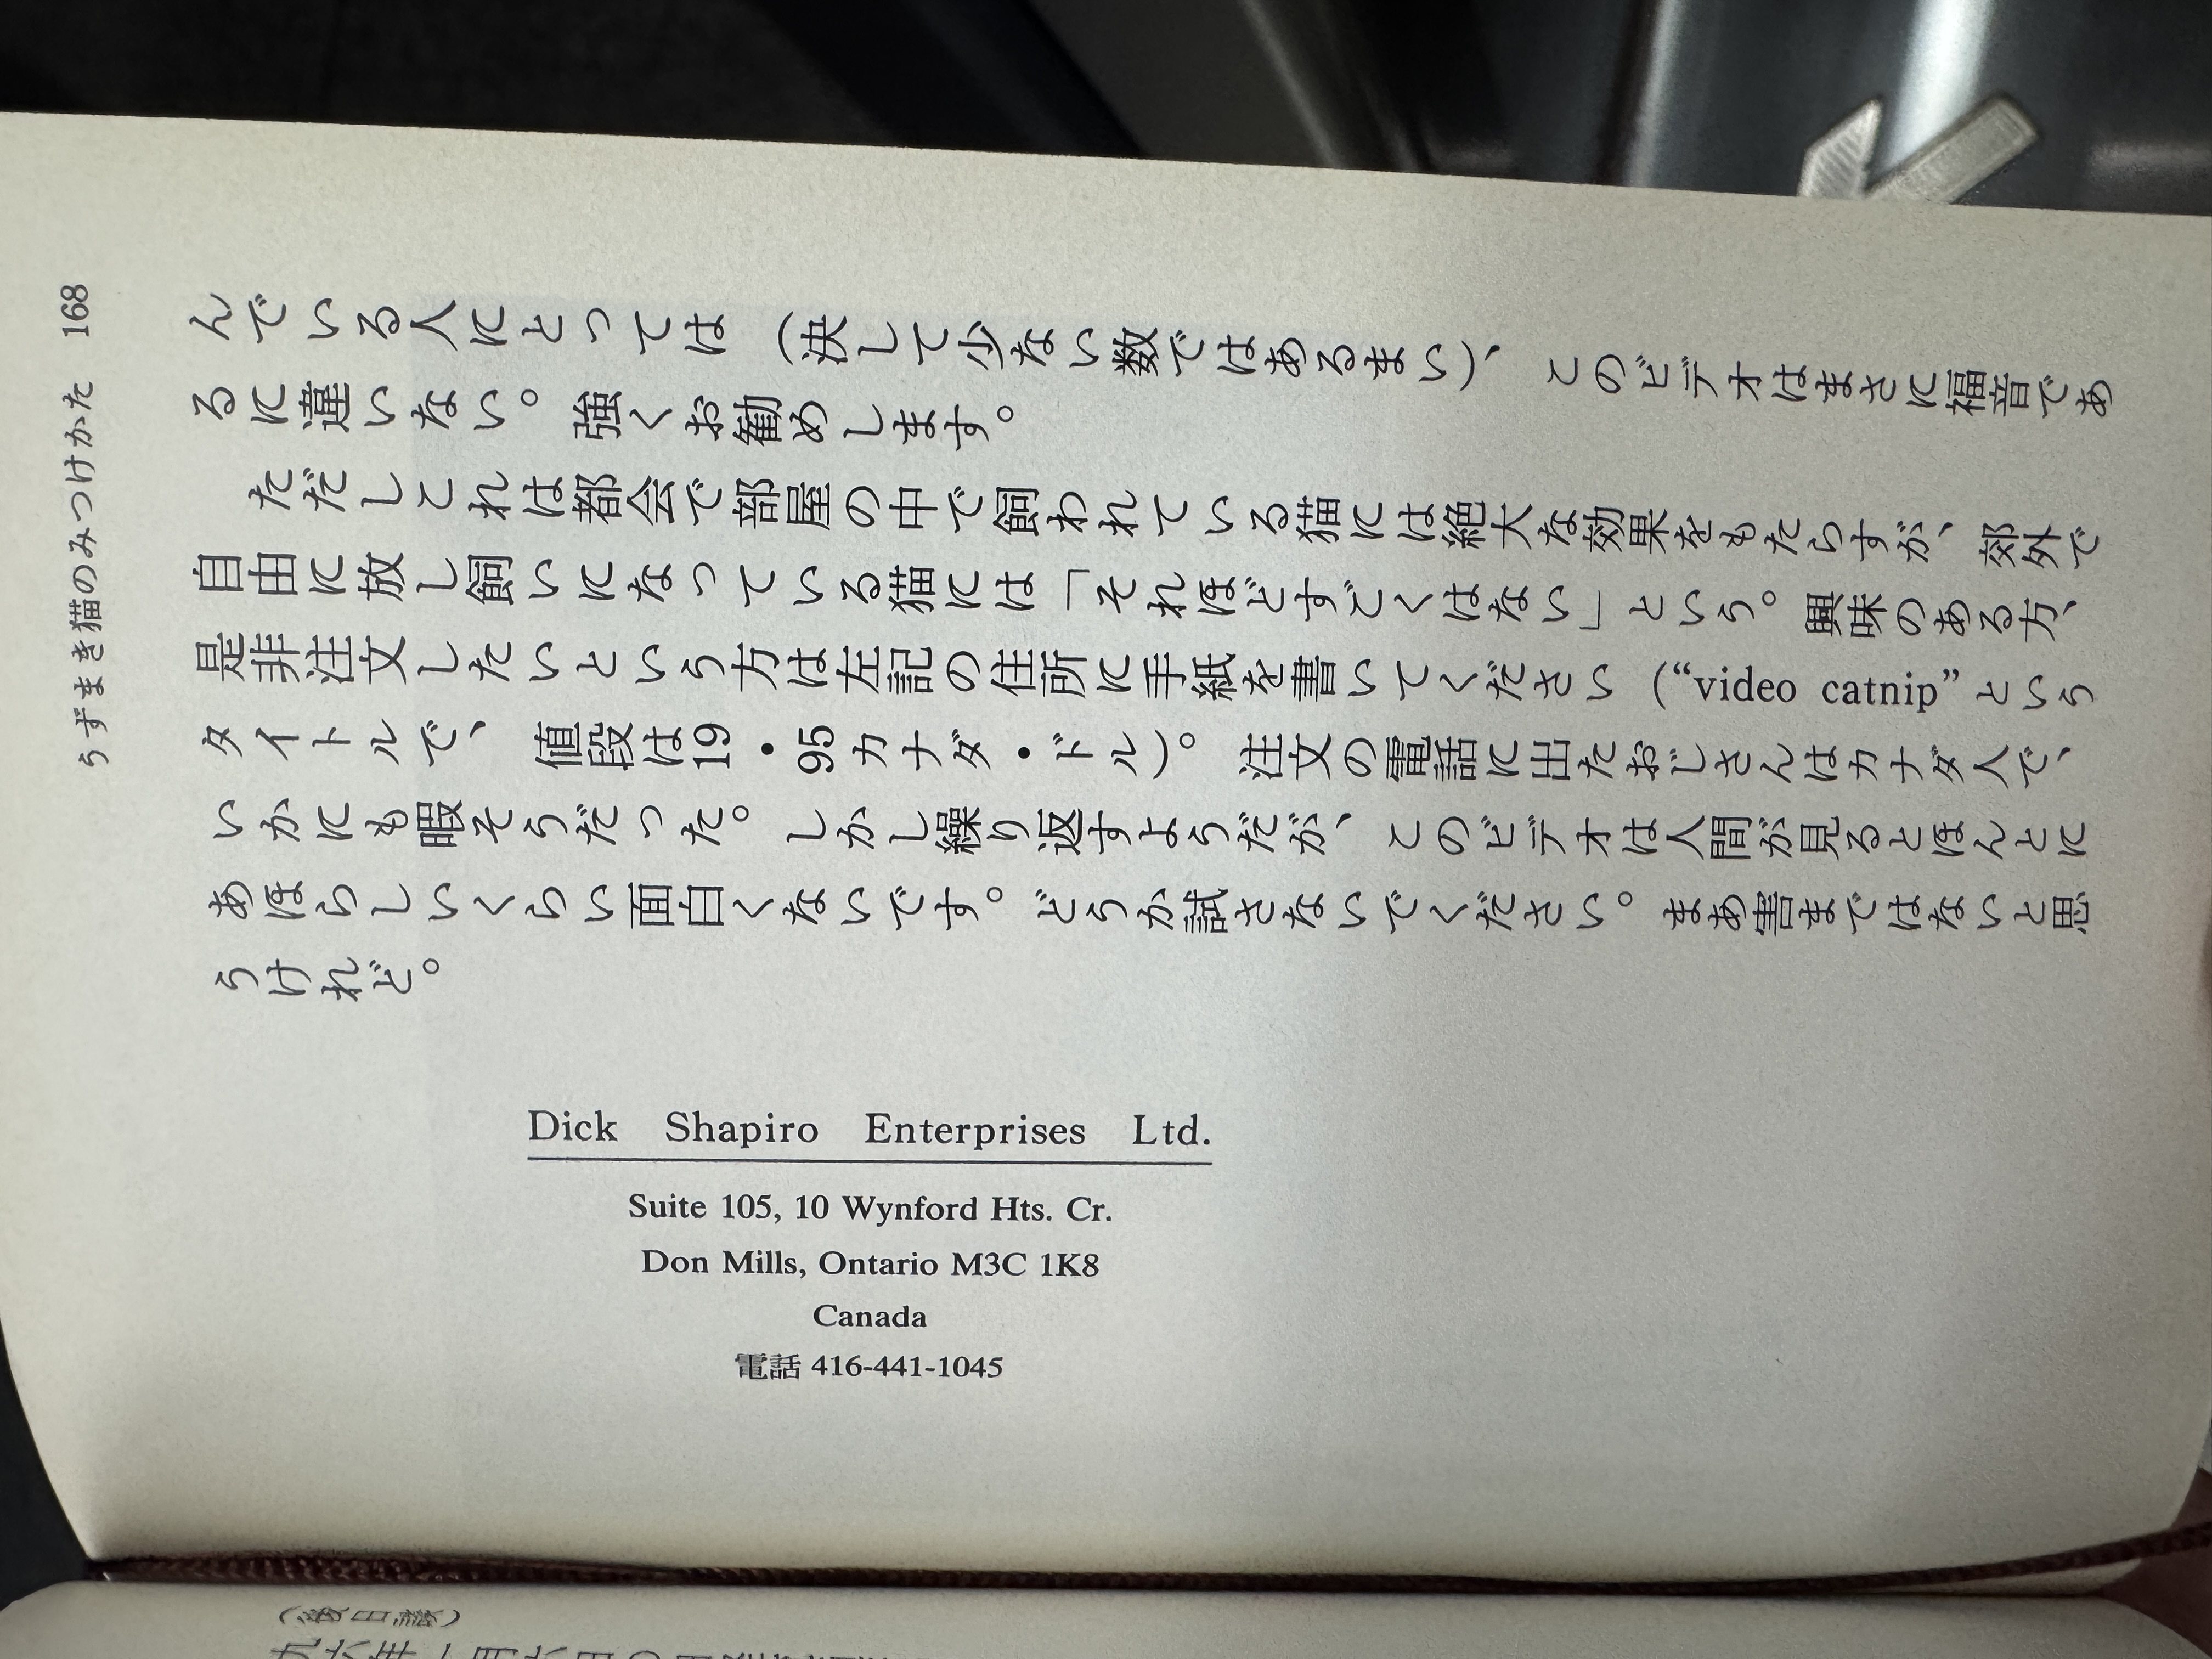 168
うずまき猫のみつけかた
んでいる人にとっては（決して少ない数ではあるまい）、このビデオはまさに福音であ
るに違いない。強くお勧めします。
ただしこれは都会で部屋の中で飼われている猫には絶大な効果をもたらすが、郊外で
自由に放し飼いになっている猫には「それほどすごくはない」という。興味のある方、
是非注文したいという方は左記の住所に手紙を書いてください（“video catnip”という
タイトルで、値段は19・95カナダ・ドル）。注文の電話に出たおじさんはカナダ人で、
いかにも暇そうだった。しかし繰り返すようだが、このビデオは人間が見るとほんとに
あほらしいくらい面白くないです。どうか試さないでください。まあ害まではないと思
うけれど。
Dick Shapiro Enterprises Ltd.
Suite 105, 10 Wynford Hts. Cr.
Don Mills, Ontario M3C 1K8
Canada
電話 416-441-1045